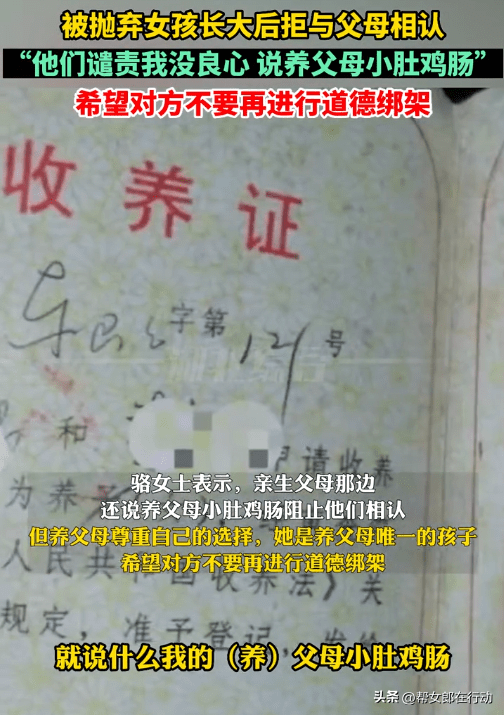 被抛弃女孩长大后拒与父母相认
“他们谴责我没良心 说养父母小肚鸡肠”
希望对方不要再进行道德绑架
收养证
字第121号
和
请收养
为养
骆女士表示，亲生父母那边
还说养父母小肚鸡肠阻止他们相认
但养父母尊重自己的选择，她是养父母唯一的孩子
希望对方不要再进行道德绑架
人民共 国收养法》关
规定，准予登记，发给
就说什么我的（养）父母小肚鸡肠
头条 @帮女郎在行动